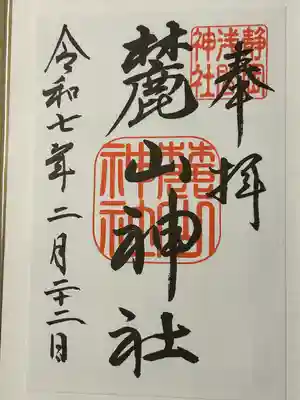 奉拝
静岡
浅間
神社
麓山神社
麓山
神社
令和七年二月二十二日